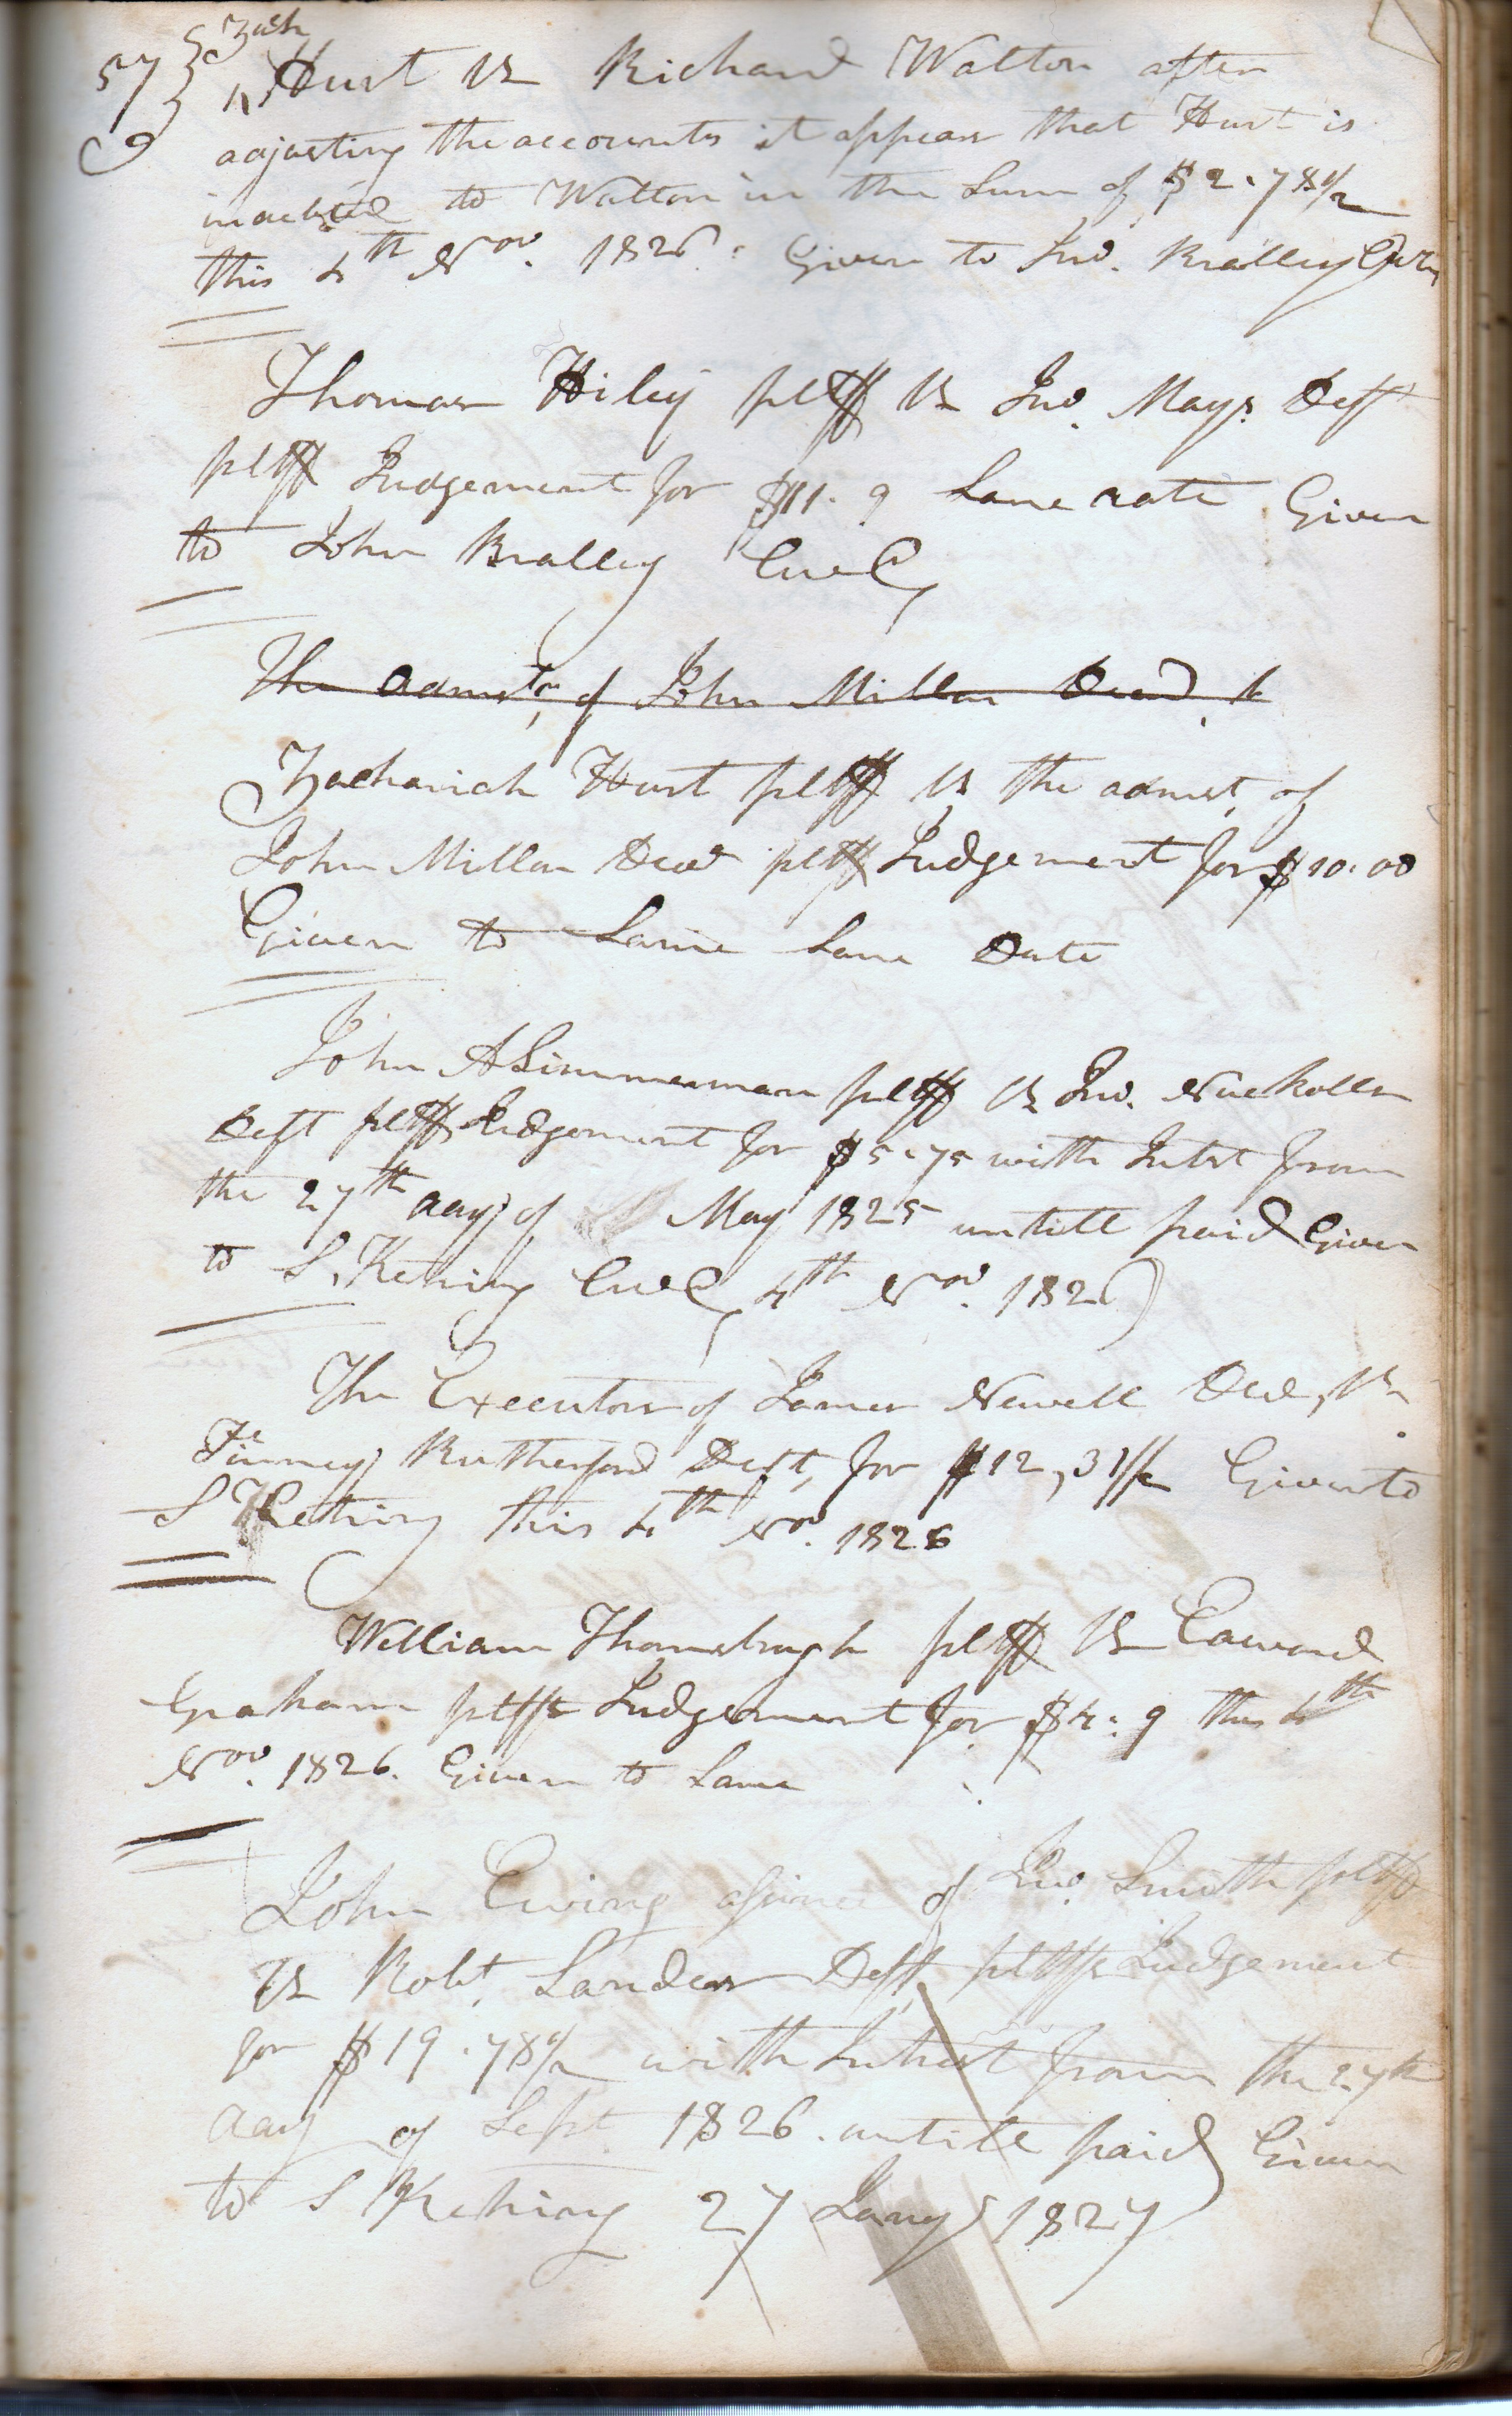 57 Zach
Hurt vs Richard Walton after
adjusting the accounts it appear that Hurt is
indebted to Walton in the Sum of $2.78 1/2
this 4th Nov. 1826. Given to Jno. Bralley
Thomas Hiley pltff vs Jno. Mays Deft
pltff Judgement for $11.9 Same rate Given
to John Bralley Const
The admst of John Millar Decd.
Zachariah Hurt pltff vs the admst. of
John Millar Decd pltff Judgement for $10.00
Given to Same Same Date
John A Simmerman pltff vs Jno. Nuckolls
Deft pltff Judgement for $5.75 with Intst from
the 27th day of May 1825 untill paid Given
to S. Kehiny 4th Nov. 1826
The Executors of James Newell Decd, vs
Rutherford Deft, for $12,31 1/2 Given to
S Kehiny this 4th Nov. 1826
William Thornbrugh pltff vs Edward
Graham pltffs Judgement for $4.9 this 4th
Nov. 1826. Given to Same
John Ewing asinee of Jno. Smith pltff
vs Robt. Sanders Deft, pltffs Judgement
for $19.78 1/2 with Intrest from the 27th
day of Sept 1826. untill paid Given
to S Kehiny 27 Jany 1827